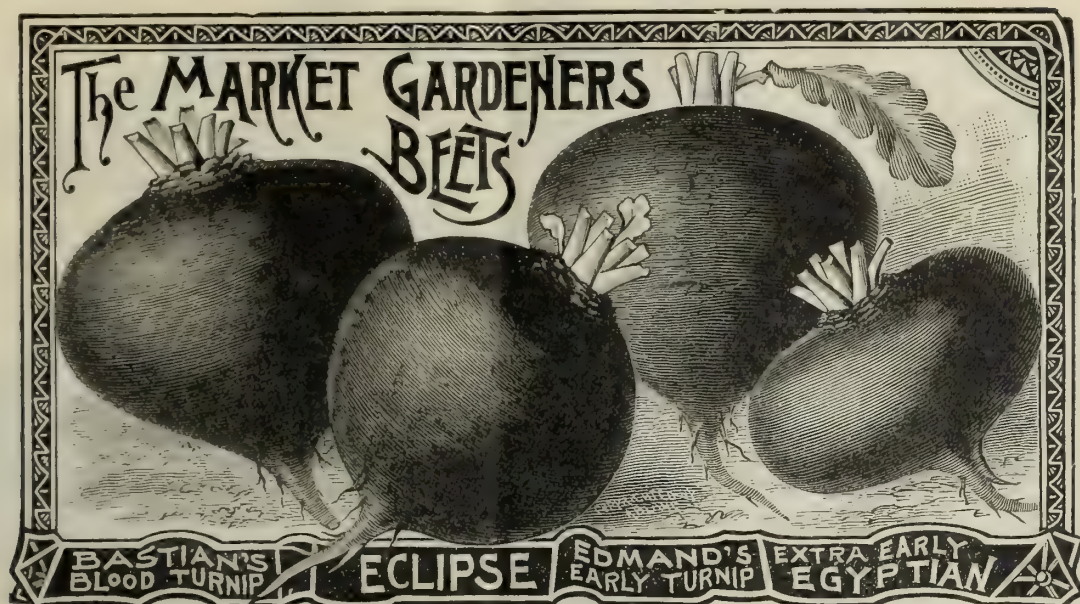 The MARKET GARDENERS
BEETS
BASTIAN'S
BLOOD TURNIP
ECLIPSE
EDMAND'S
EARLY TURNIP
EXTRA EARLY
EGYPTIAN